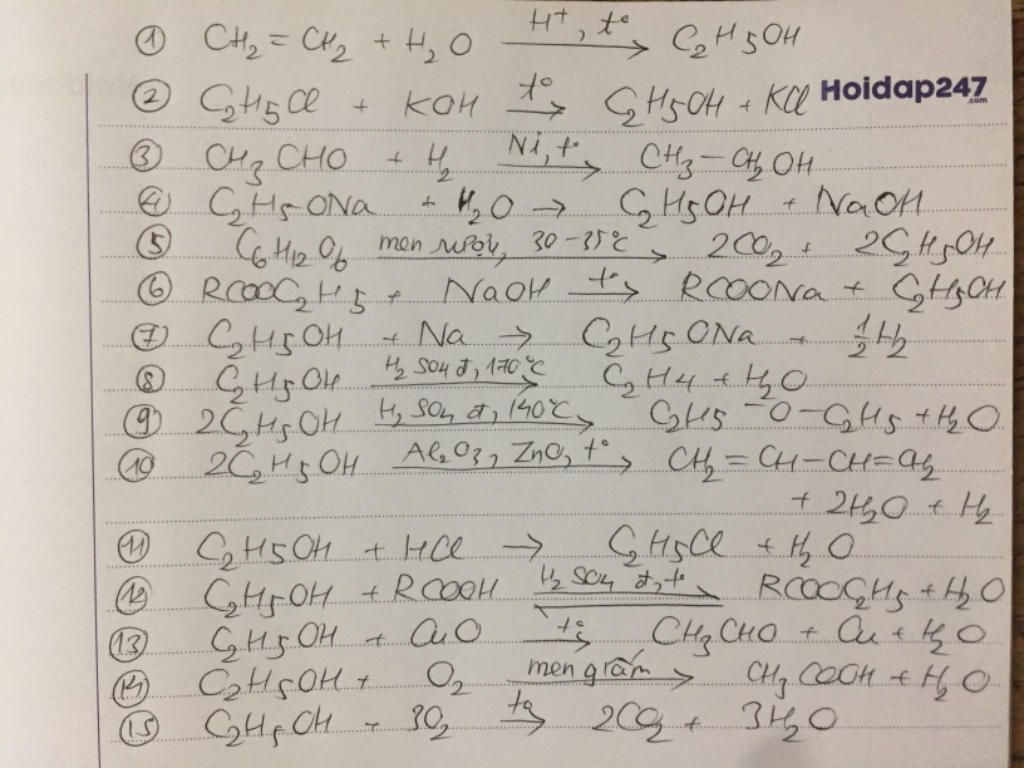 ① CH₂=CH₂ + H₂O —H⁺, t°→ C₂H₅OH
② C₂H₅Cl + KOH —t°→ C₂H₅OH + KCl Hoidap247.com
③ CH₃CHO + H₂ —Ni, t°→ CH₃–CH₂OH
④ C₂H₅–ONa + H₂O → C₂H₅OH + NaOH
⑤ C₆H₁₂O₆ —men rượu, 30–35°C→ 2CO₂ + 2C₂H₅OH
⑥ RCOOC₂H₅ + NaOH —t°→ RCOONa + C₂H₅OH
⑦ C₂H₅OH + Na → C₂H₅ONa + ½H₂
⑧ C₂H₅OH —H₂SO₄ đ, 170°C→ C₂H₄ + H₂O
⑨ 2C₂H₅OH —H₂SO₄ đ, 140°C→ C₂H₅–O–C₂H₅ + H₂O
⑩ 2C₂H₅OH —Al₂O₃, ZnO, t°→ CH₂=CH–CH=CH₂
+ 2H₂O + H₂
⑪ C₂H₅OH + HCl → C₂H₅Cl + H₂O
⑫ C₂H₅OH + RCOOH —H₂SO₄ đ, t°⇌ RCOOC₂H₅ + H₂O
⑬ C₂H₅OH + CuO —t°→ CH₃CHO + Cu + H₂O
⑭ C₂H₅OH + O₂ —men giấm→ CH₃COOH + H₂O
⑮ C₂H₅OH + 3O₂ —t°→ 2CO₂ + 3H₂O